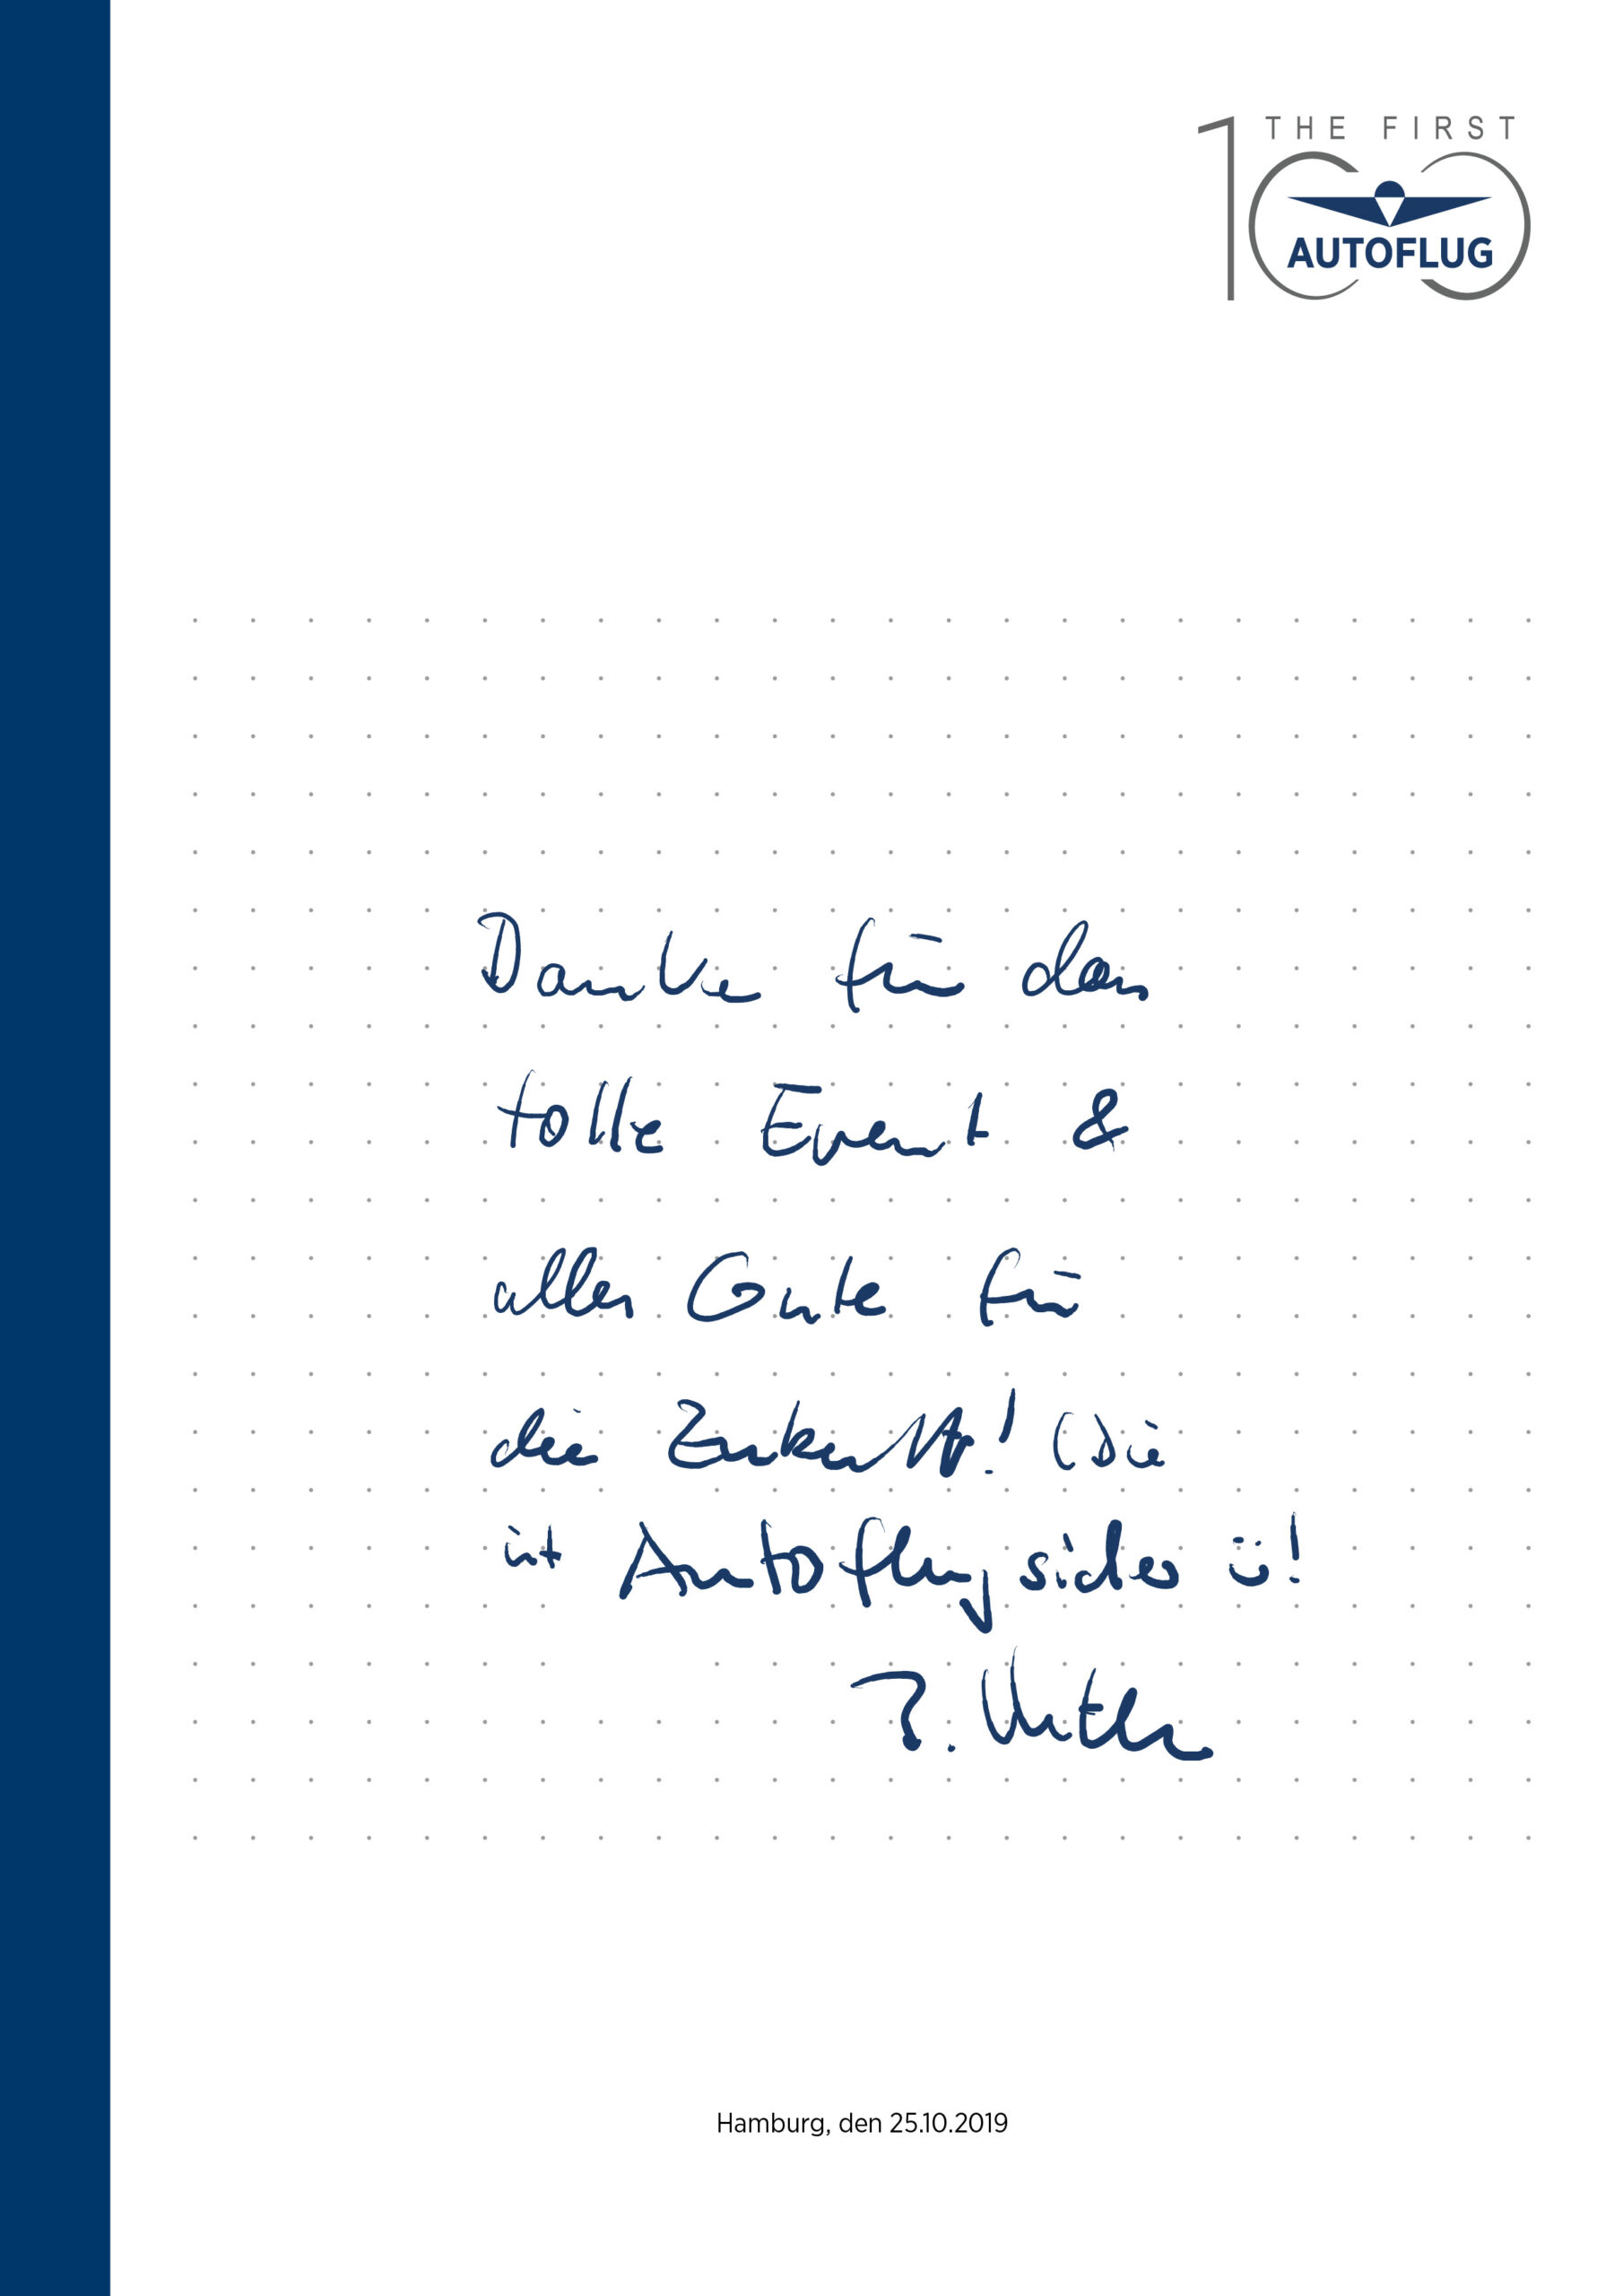 THE FIRST
100
AUTOFLUG
Danke für den
tolle Event &
alles Gute für
die Zukunft! (Die
ist Autoflug sicher ü!
Hamburg, den 25.10.2019